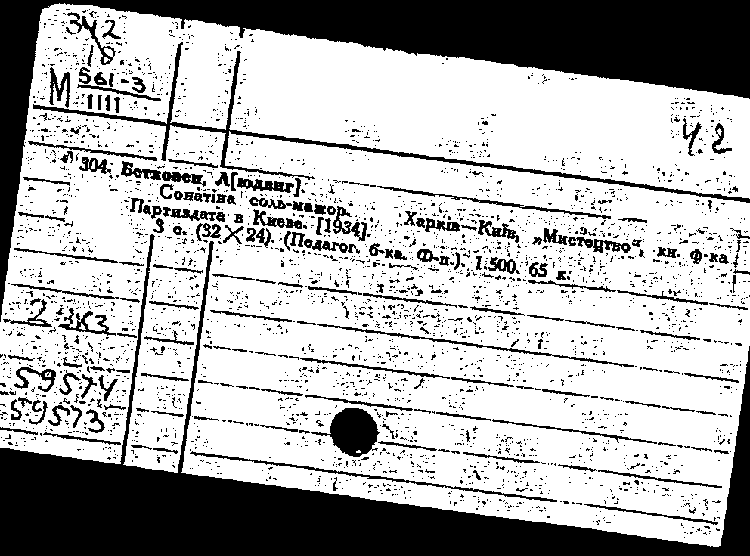 342
18.
М 561-3
1111
4.2
304. Бетховен, Л[юдвиг].
Сонатіна соль-мажор. Харків—Київ, „Мистецтво“, кн. ф-ка
Партвидата в Києве. [1934].
3 с. (32×24). (Педагог. б-ка. Ф-п.). 1.500. 65 к.
2 экз
59574
59573